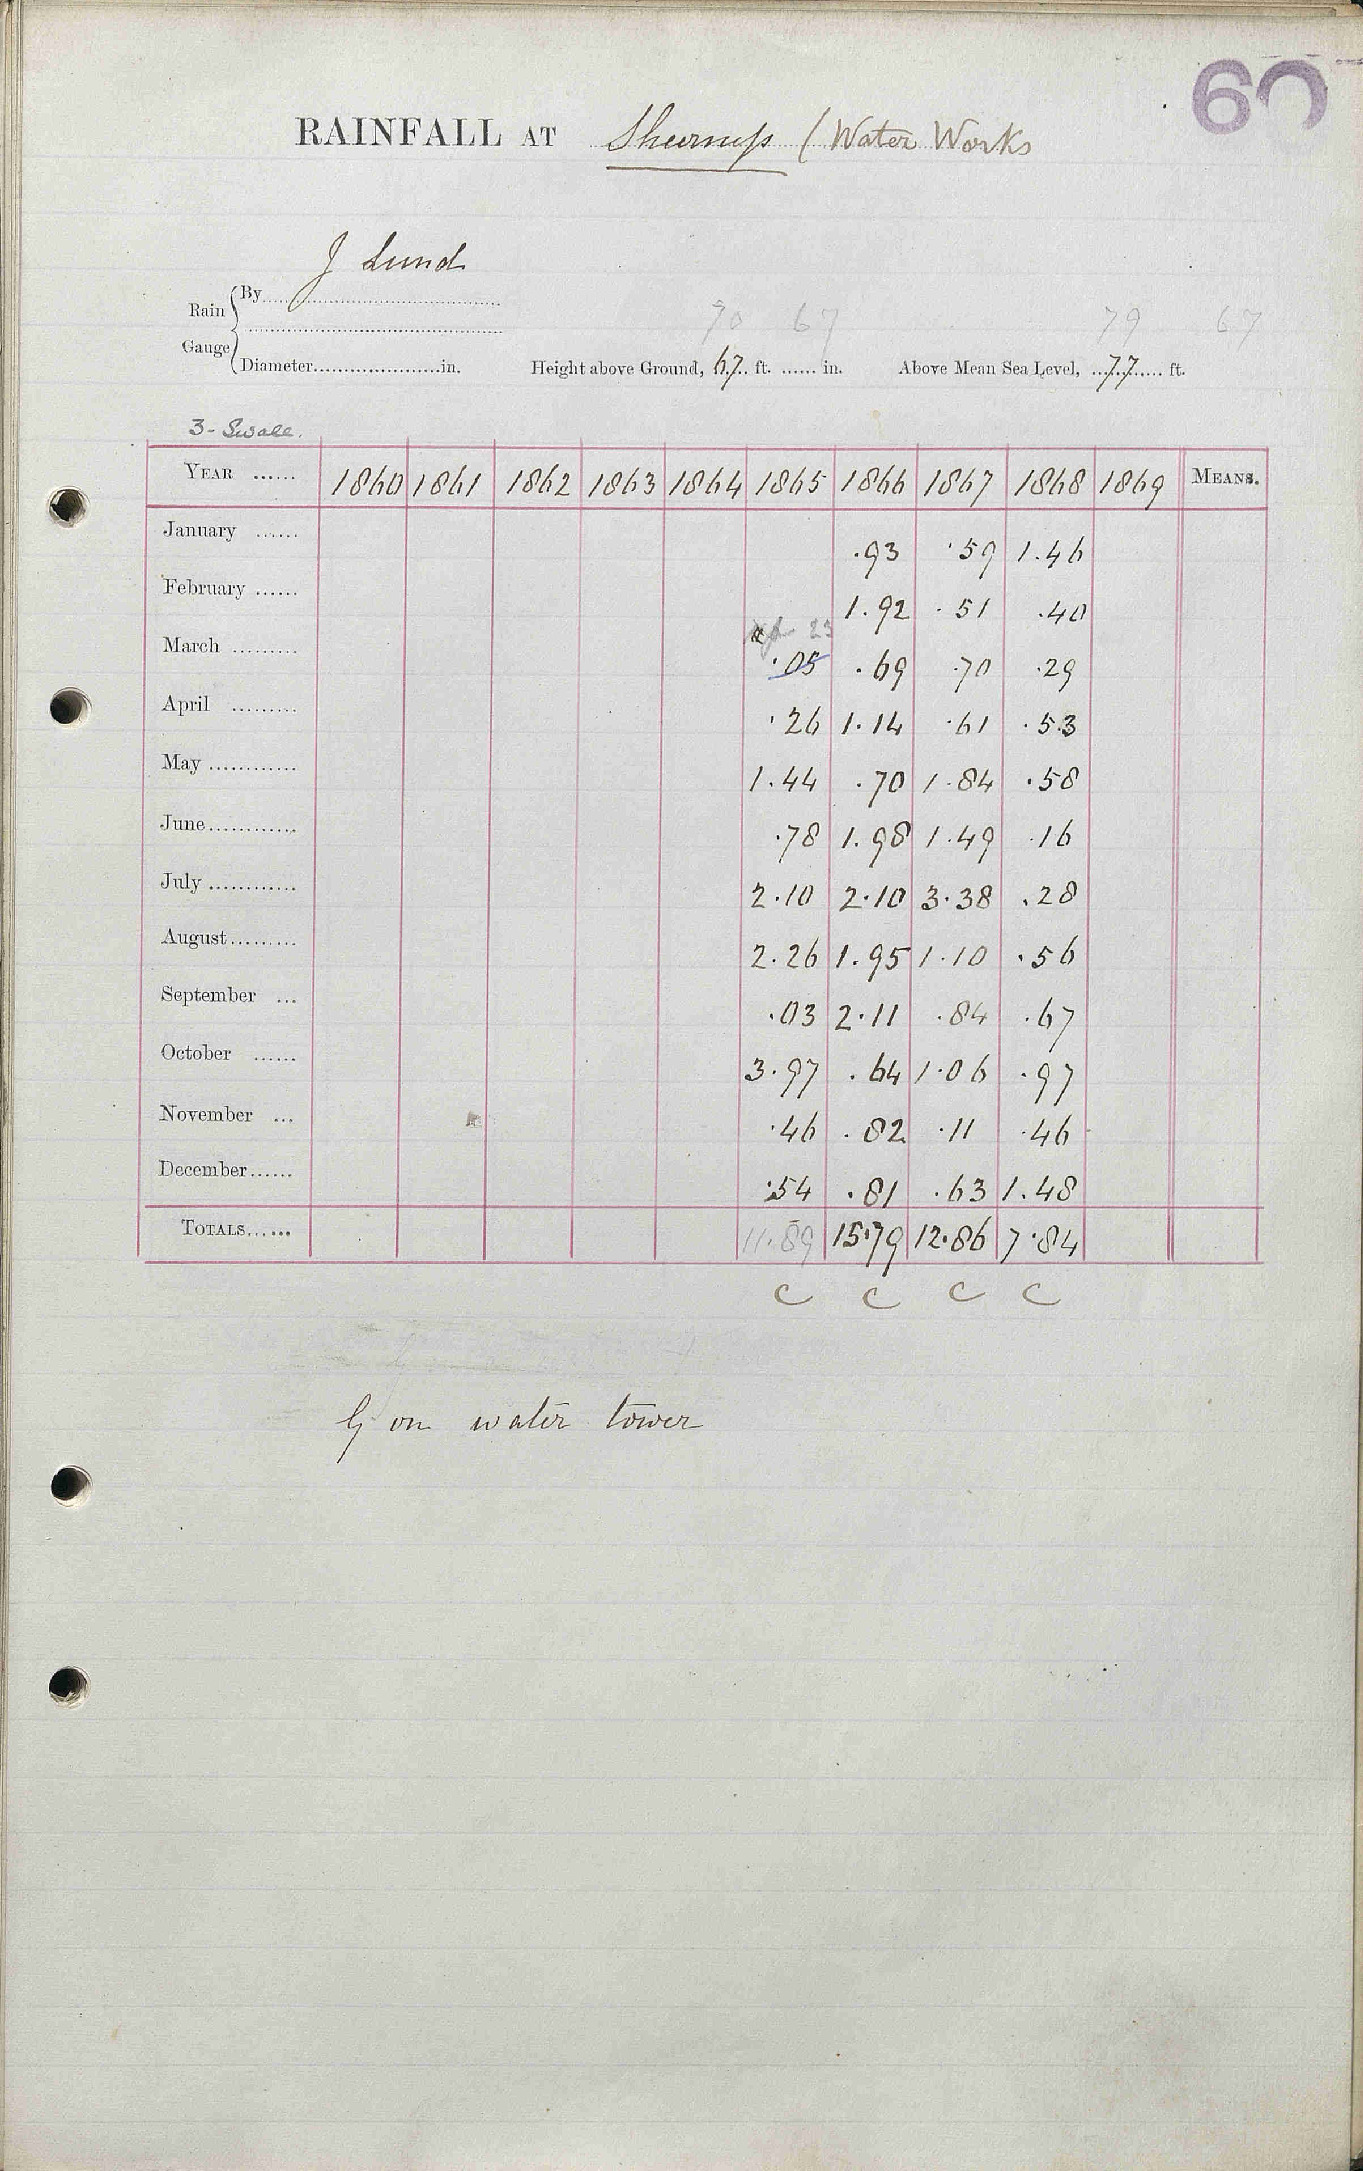 60
RAINFALL AT Sheerness (Water Works
J Lund
Rain Gauge
By
70 67 79 67
Diameter in. Height above Ground, 67 ft. in. Above Mean Sea Level, 77 ft.
3 - Swale.
YEAR 1860 1861 1862 1863 1864 1865 1866 1867 1868 1869 MEANS.
January .93 .59 1.46
February 1.92 .51 .40
23
March .05 .69 .70 .29
April .26 1.14 .61 .53
May 1.44 .70 1.84 .58
June .78 1.98 1.49 .16
July 2.10 2.10 3.38 .28
August 2.26 1.95 1.10 .56
September .03 2.11 .84 .67
October 3.97 .64 1.06 .97
November .46 .82 .11 .46
December .54 .81 .63 1.48
TOTALS 11.89 15.79 12.86 7.84
C C C C
G on water tower